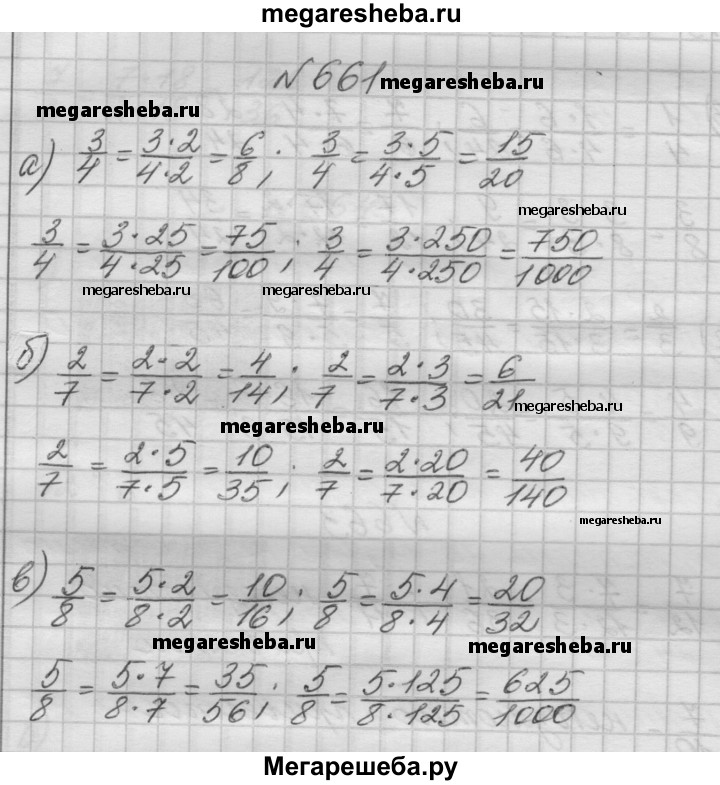 megaresheba.ru
№661 megaresheba.ru
megaresheba.ru
а) 3/4 = 3·2/4·2 = 6/8; 3/4 = 3·5/4·5 = 15/20
megaresheba.ru
3/4 = 3·25/4·25 = 75/100; 3/4 = 3·250/4·250 = 750/1000
megaresheba.ru megaresheba.ru
б) 2/7 = 2·2/7·2 = 4/14; 2/7 = 2·3/7·3 = 6/21
megaresheba.ru
megaresheba.ru
2/7 = 2·5/7·5 = 10/35; 2/7 = 2·20/7·20 = 40/140
megaresheba.ru
в) 5/8 = 5·2/8·2 = 10/16; 5/8 = 5·4/8·4 = 20/32
megaresheba.ru megaresheba.ru
5/8 = 5·7/8·7 = 35/56; 5/8 = 5·125/8·125 = 625/1000
Мегарешеба.ру